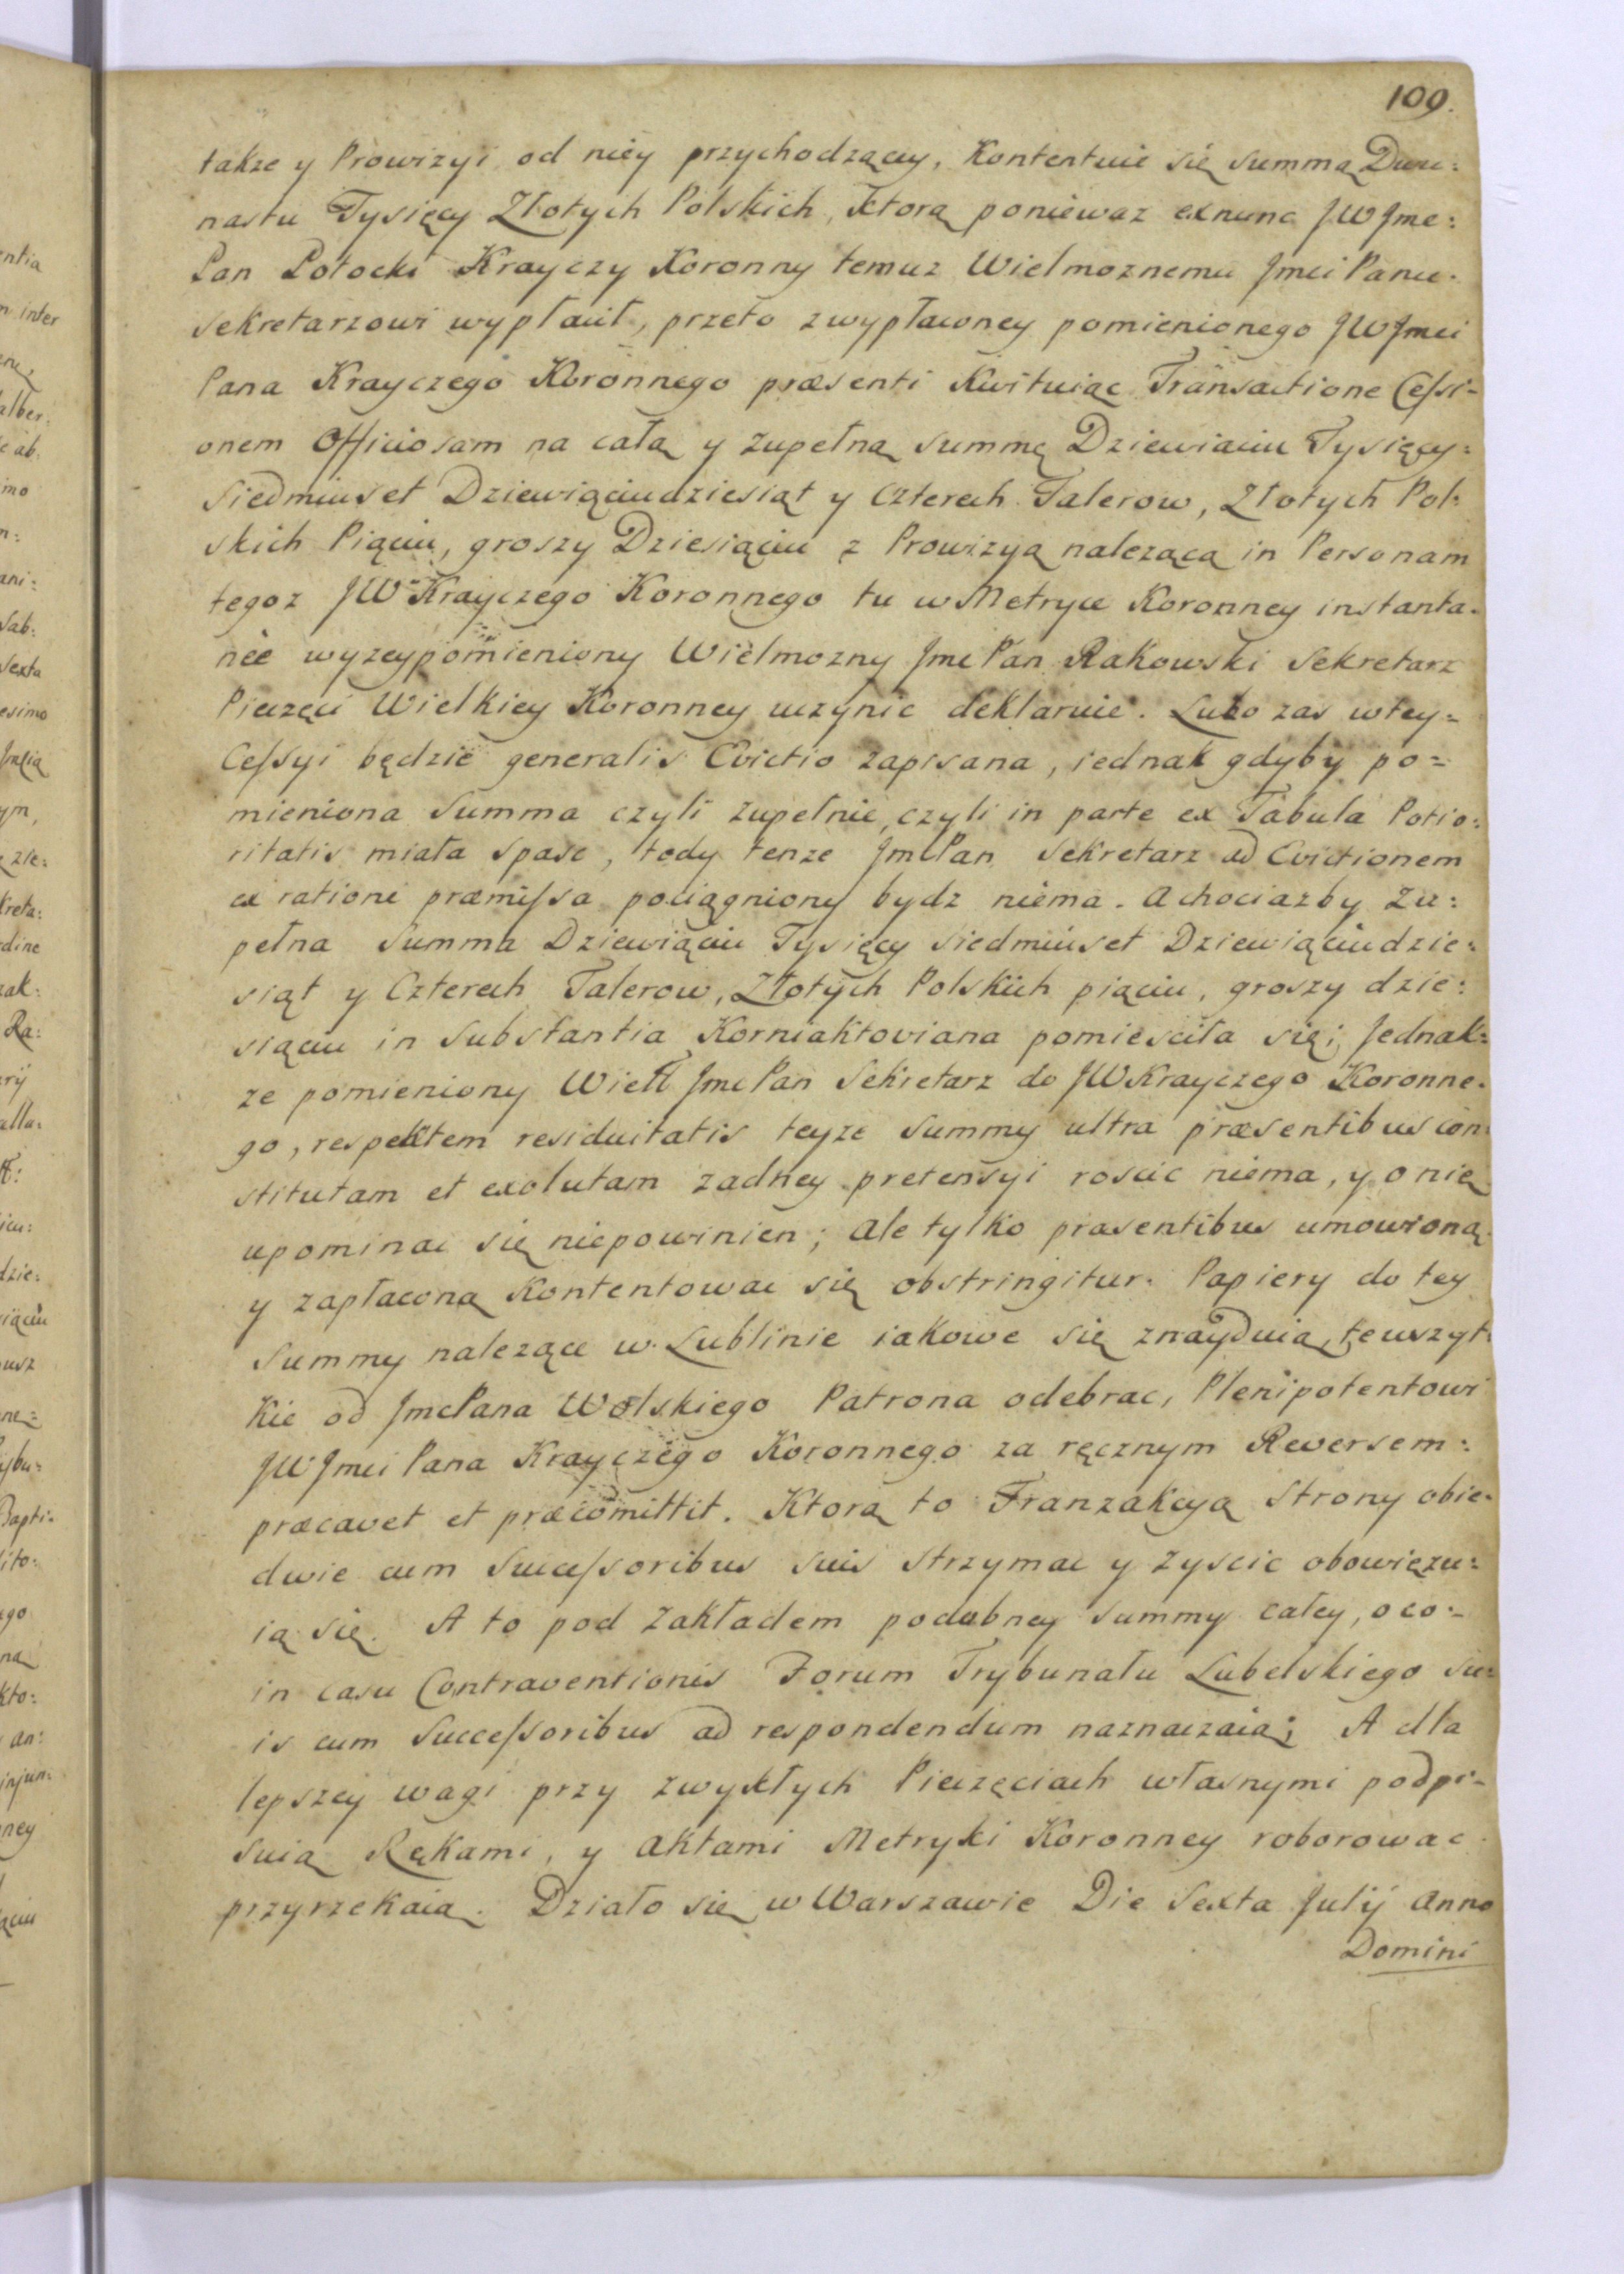 109.
takze y Prowizyi od niey przychodzącey, Kontentuie się summą Dwu:
nastu Tysięcy Złotych Polskich, Ktorą poniewaz exnunc JW Jmc:
Pan Potocki Krayczy Koronny temuz Wielmoznemu Jmci Panu
Sekretarzowi wypłacił, przeto z wypłaconey pomienionego JWJmci
Pana Krayczego Koronnego præsenti Kwituiąc Transactione Cessi-
onem Officiosam na całą y zupełną summę Dziewiąciu Tysięcy:
Siedmiuset Dziewiąciudziesiąt y Czterech Talerow, Złotych Pol:
skich Piąciu, groszy Dziesiąciu z Prowizyą nalezącą in Personam
tegoz JW Krayczego Koronnego tu w Metryce Koronney instanta-
neè wyzeypomieniony Wielmozny Jmc Pan Rakowski Sekretarz
Pieczęci Wielkiey Koronney uczynic deklaruie. Lubo zas wtey-
Cessyi będzie generalis Evictio zapisana, iednak gdyby po-
mieniona Summa czyli zupełnie, czyli in parte ex Tabula Potio:
ritatis miała spasc, tedy tenze JmcPan Sekretarz ad Evictionem
ex ratione præmissa pociągniony bydz niema. A chociazby Zu:
pełna Summa Dziewiąciu Tysięcy Siedmiuset Dziewiąciudzie:
siąt y Czterech Talerow, Złotych Polskich piąciu, groszy dzie:
siąciu in Substantia Korniaktoviana pomiesciła się; Jednak:
ze pomieniony Wiel Jmc Pan Sekretarz do JWKrayczego Koronne-
go, respektem residuitatis teyze Summy ultra præsentibus con
stitutam et exolutam zadney pretensyi roscic niema, y o nię
upominac się niepowinien; Ale tylko præsentibus umowioną
y zapłaconą Kontentowac się obstringitur. Papiery do tey
Summy nalezące w Lublinie iakowe się znayduią, te wszyt:
kie od JmcPana Wolskiego Patrona odebrac, Plenipotentowi
JWJmci Pana Krayczego Koronnego za ręcznym Rewersem:
præcavet et præcomittit. Ktorą to Tranzakcyą Strony obie-
dwie cum Successoribus suis strzymac y zyscic obowięzu:
ią się. A to pod Zakładem podobney Summy całey, o co:
in casu Contraventionis Forum Trybunału Lubelskiego su:
is cum Successoribus ad respondendum naznaczaią; A dla
lepszey wagi przy zwykłych Pieczęciach własnymi podpi-
suią Rękami, y Aktami Metryki Koronney roborowac
przyrzekaią. Działo się w Warszawie Die Sexta Julij Anno
Domini